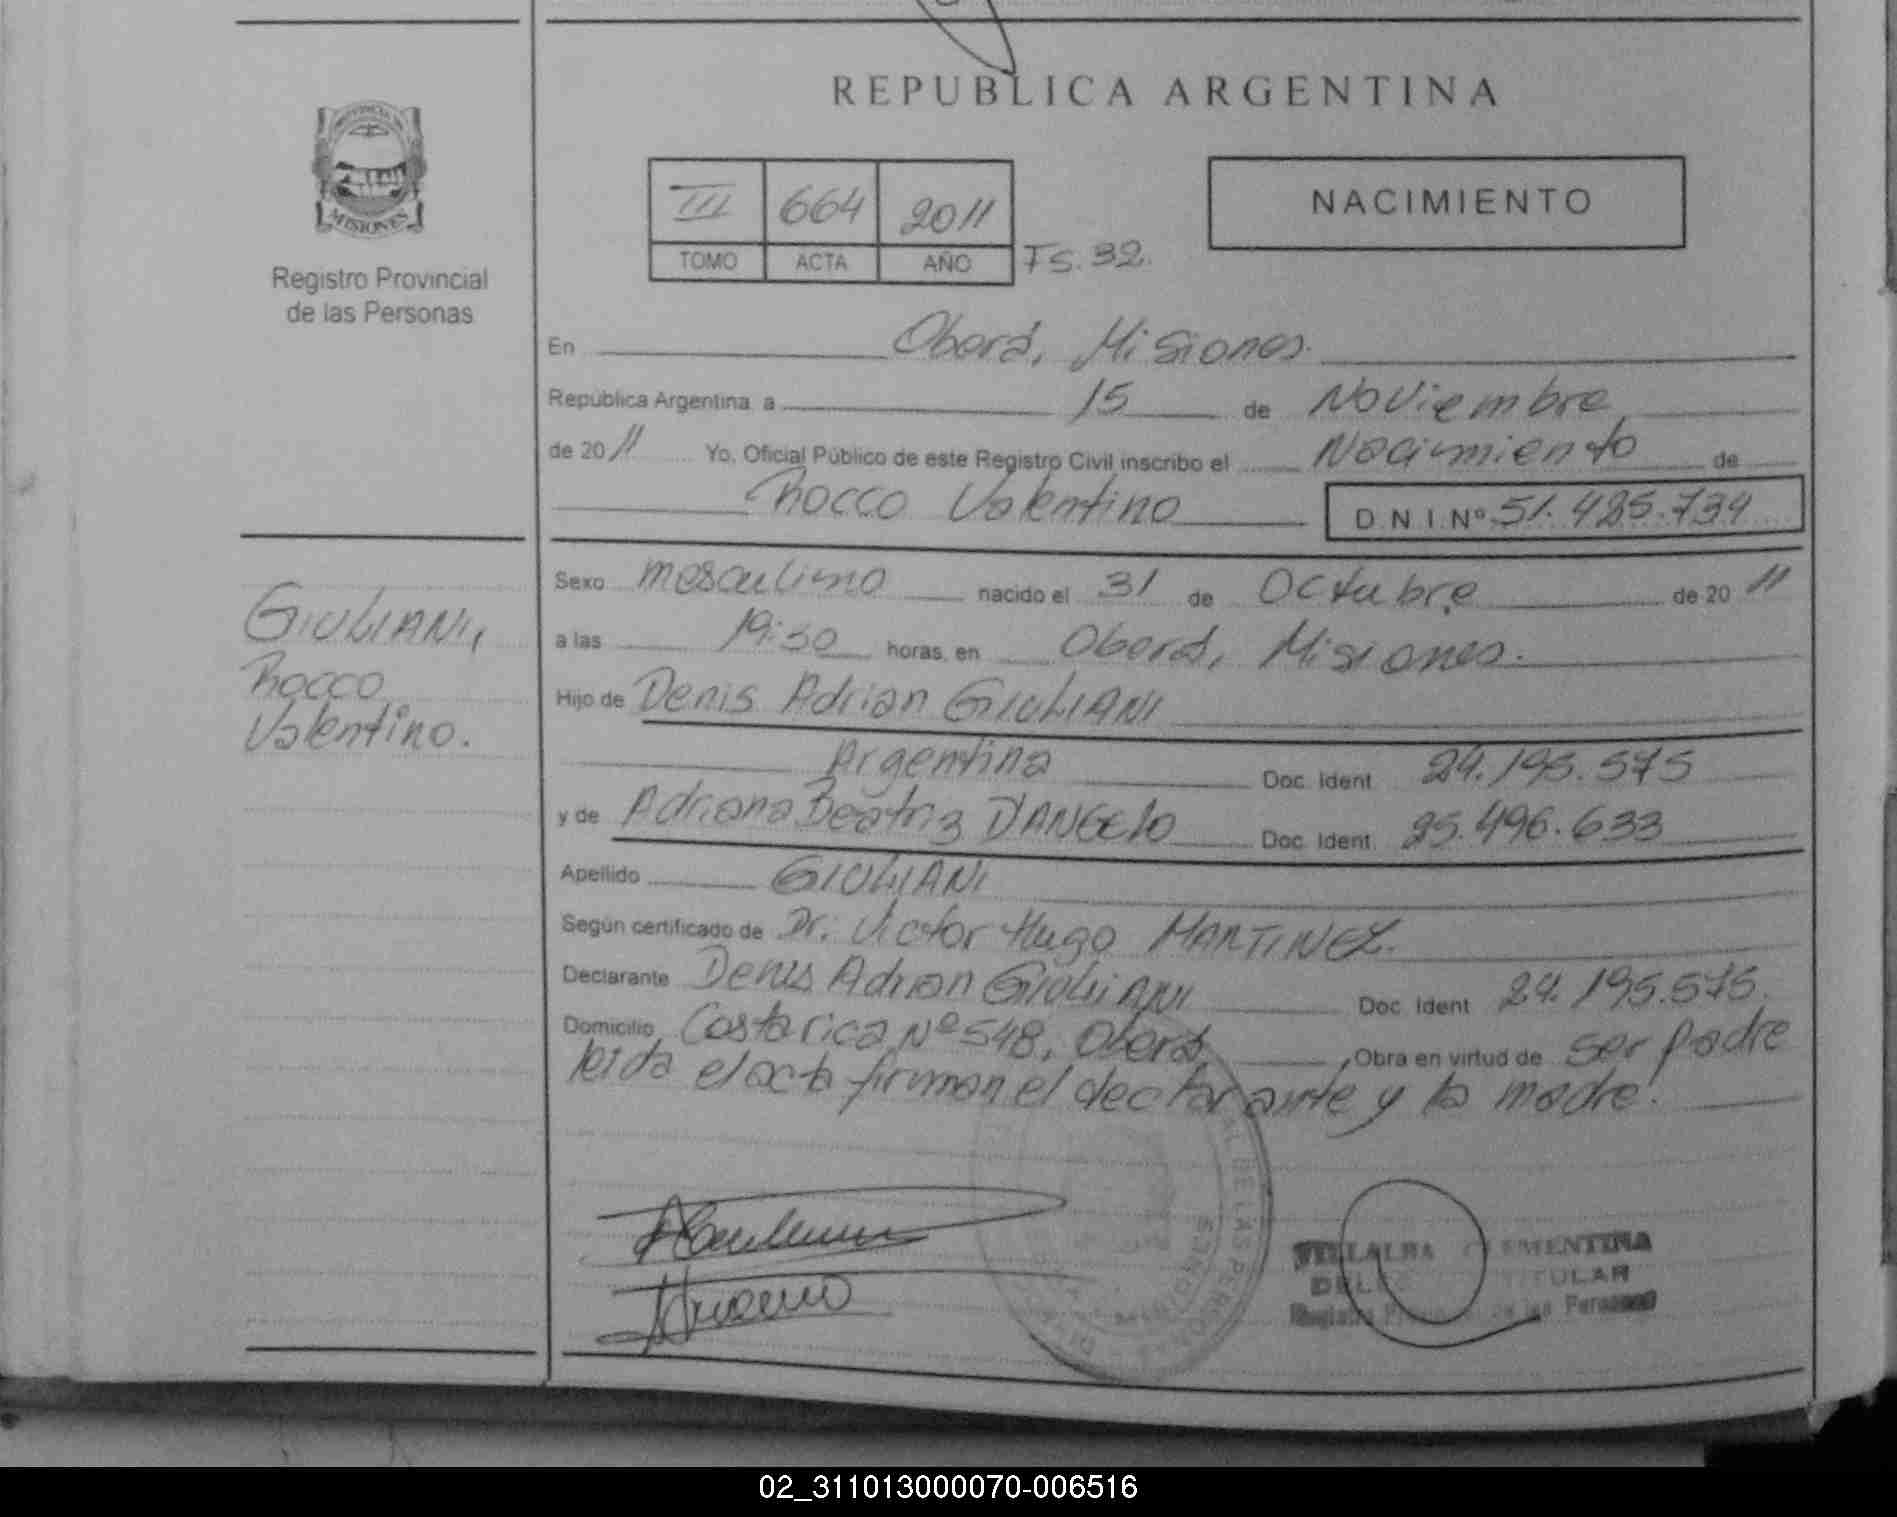 REPUBLICA ARGENTINA
MISIONES
Registro Provincial
de las Personas
III 664 2011
TOMO ACTA AÑO Fs. 32.
NACIMIENTO
En Oberá, Misiones.
República Argentina a 15 de Noviembre
de 2011 Yo, Oficial Público de este Registro Civil inscribo el Nacimiento de
Rocco Valentino D.N.I. Nº 51.485.734
GIULIANI,
Rocco
Valentino.
Sexo masculino nacido el 31 de Octubre de 2011
a las 19:30 horas, en Oberá, Misiones.
Hijo de Denis Adrian GIULIANI
Argentina Doc. Ident. 24.195.575
y de Adriana Beatriz D'ANGELO Doc. Ident. 25.496.633
Apellido GIULIANI
Según certificado de Dr. Victor Hugo MARTINEZ.
Declarante Denis Adrian GIULIANI Doc. Ident 24.195.575.
Domicilio Costa rica Nº 548, Oberá, Obra en virtud de ser padre
leida el acta firman el declarante y la madre.
VILLALBA CLEMENTINA
TITULAR
de las Personas
02_311013000070-006516